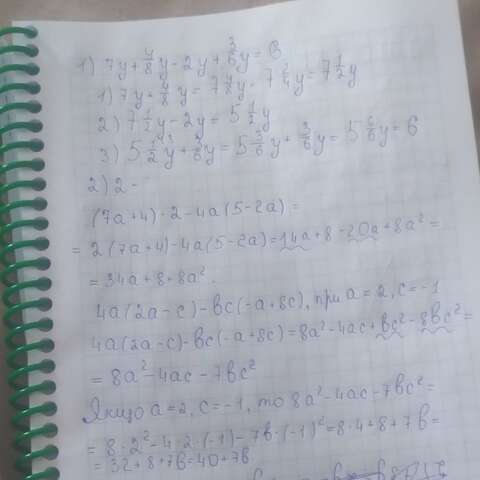 1) 7y + 4/8 y - 2y + 3/6 y = 6
1) 7y + 4/8 y = 7 4/8 y = 7 2/4 y = 7 1/2 y
2) 7 1/2 y - 2y = 5 1/2 y
3) 5 1/2 y + 3/6 y = 5 3/6 y + 3/6 y = 5 6/6 y = 6
2) 2 -
(7a+4)·2-4a(5-2a)=
= 2(7a+4)-4a(5-2a)=14a+8-20a+8a²=
= 34a+8+8a².
4a(2a-c)-вc(-a+8c), при a=2, c=-1
4a(2a-c)-вc(-a+8c)=8a²-4ac+вc²-8вc²=
= 8a²-4ac-7вc²
Якщо a=2, c=-1, то 8a²-4ac-7вc²=
= 8·2²-4·2·(-1)-7в·(-1)²=8·4+8+7в=
= 32+8+7в=40+7в